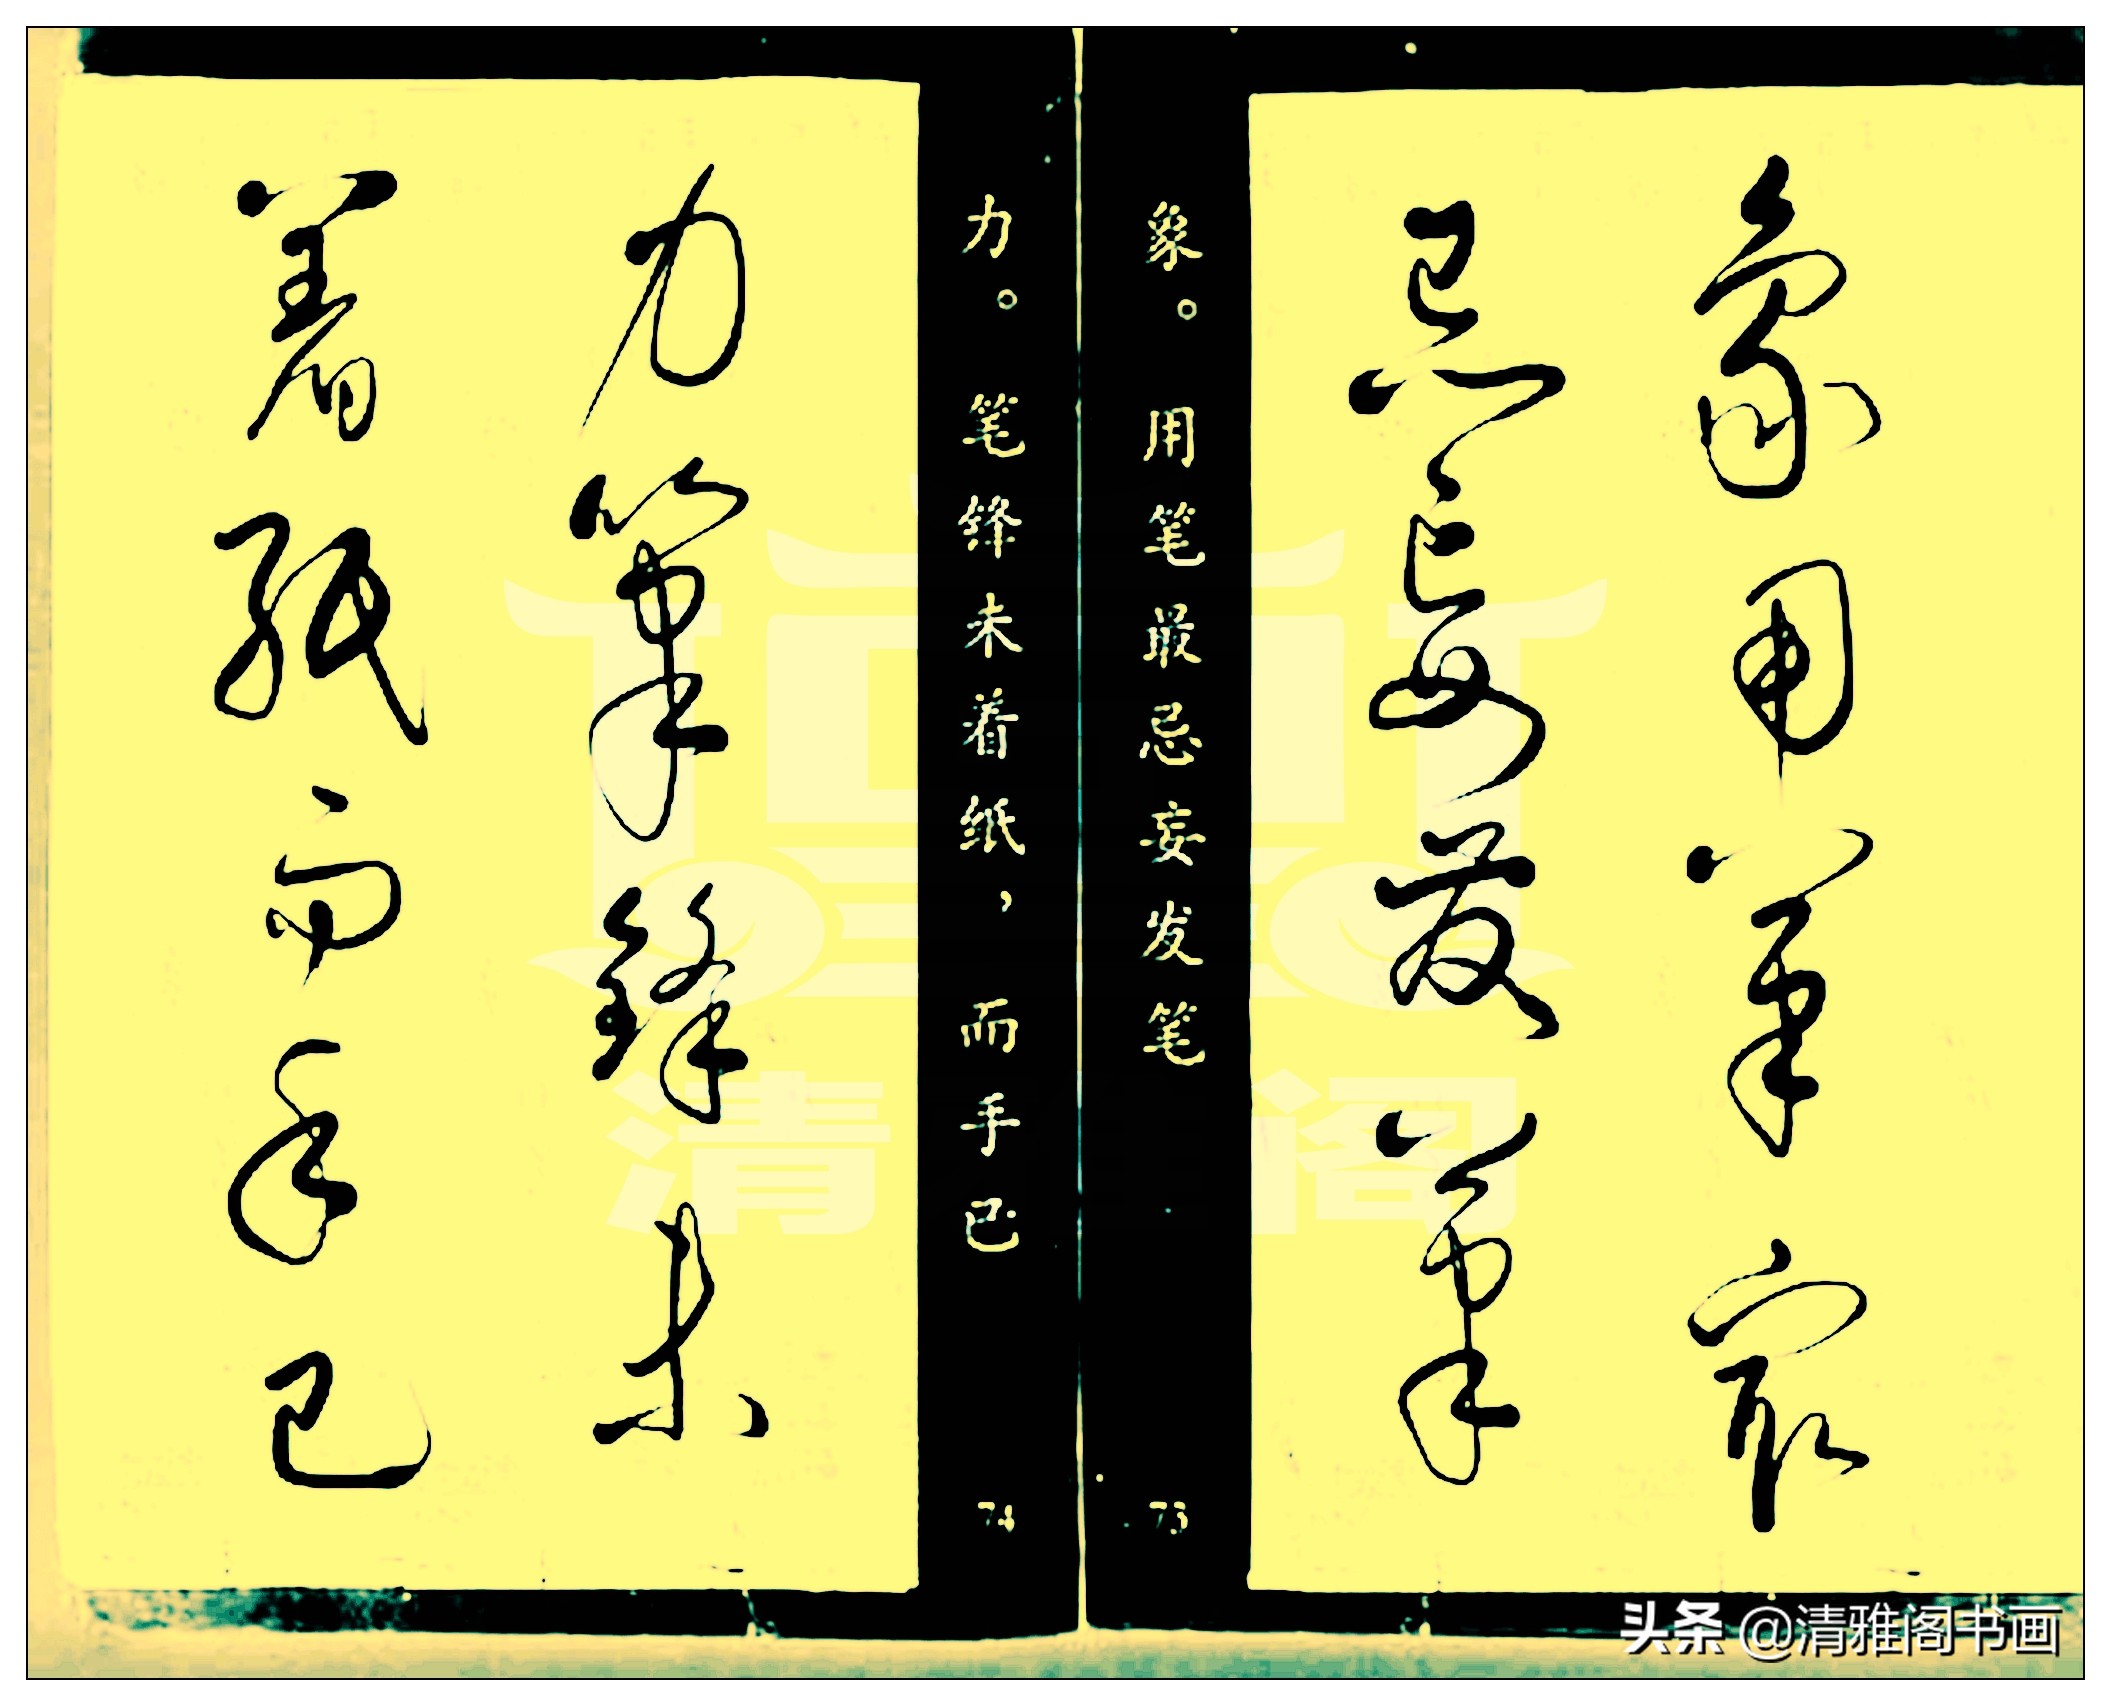 象用笔最
忌妄发笔
象。用笔最忌妄发笔
73
力笔锋未
着纸而手已
力。笔锋未着纸，而手已
74
清 阁
头条 @清雅阁书画